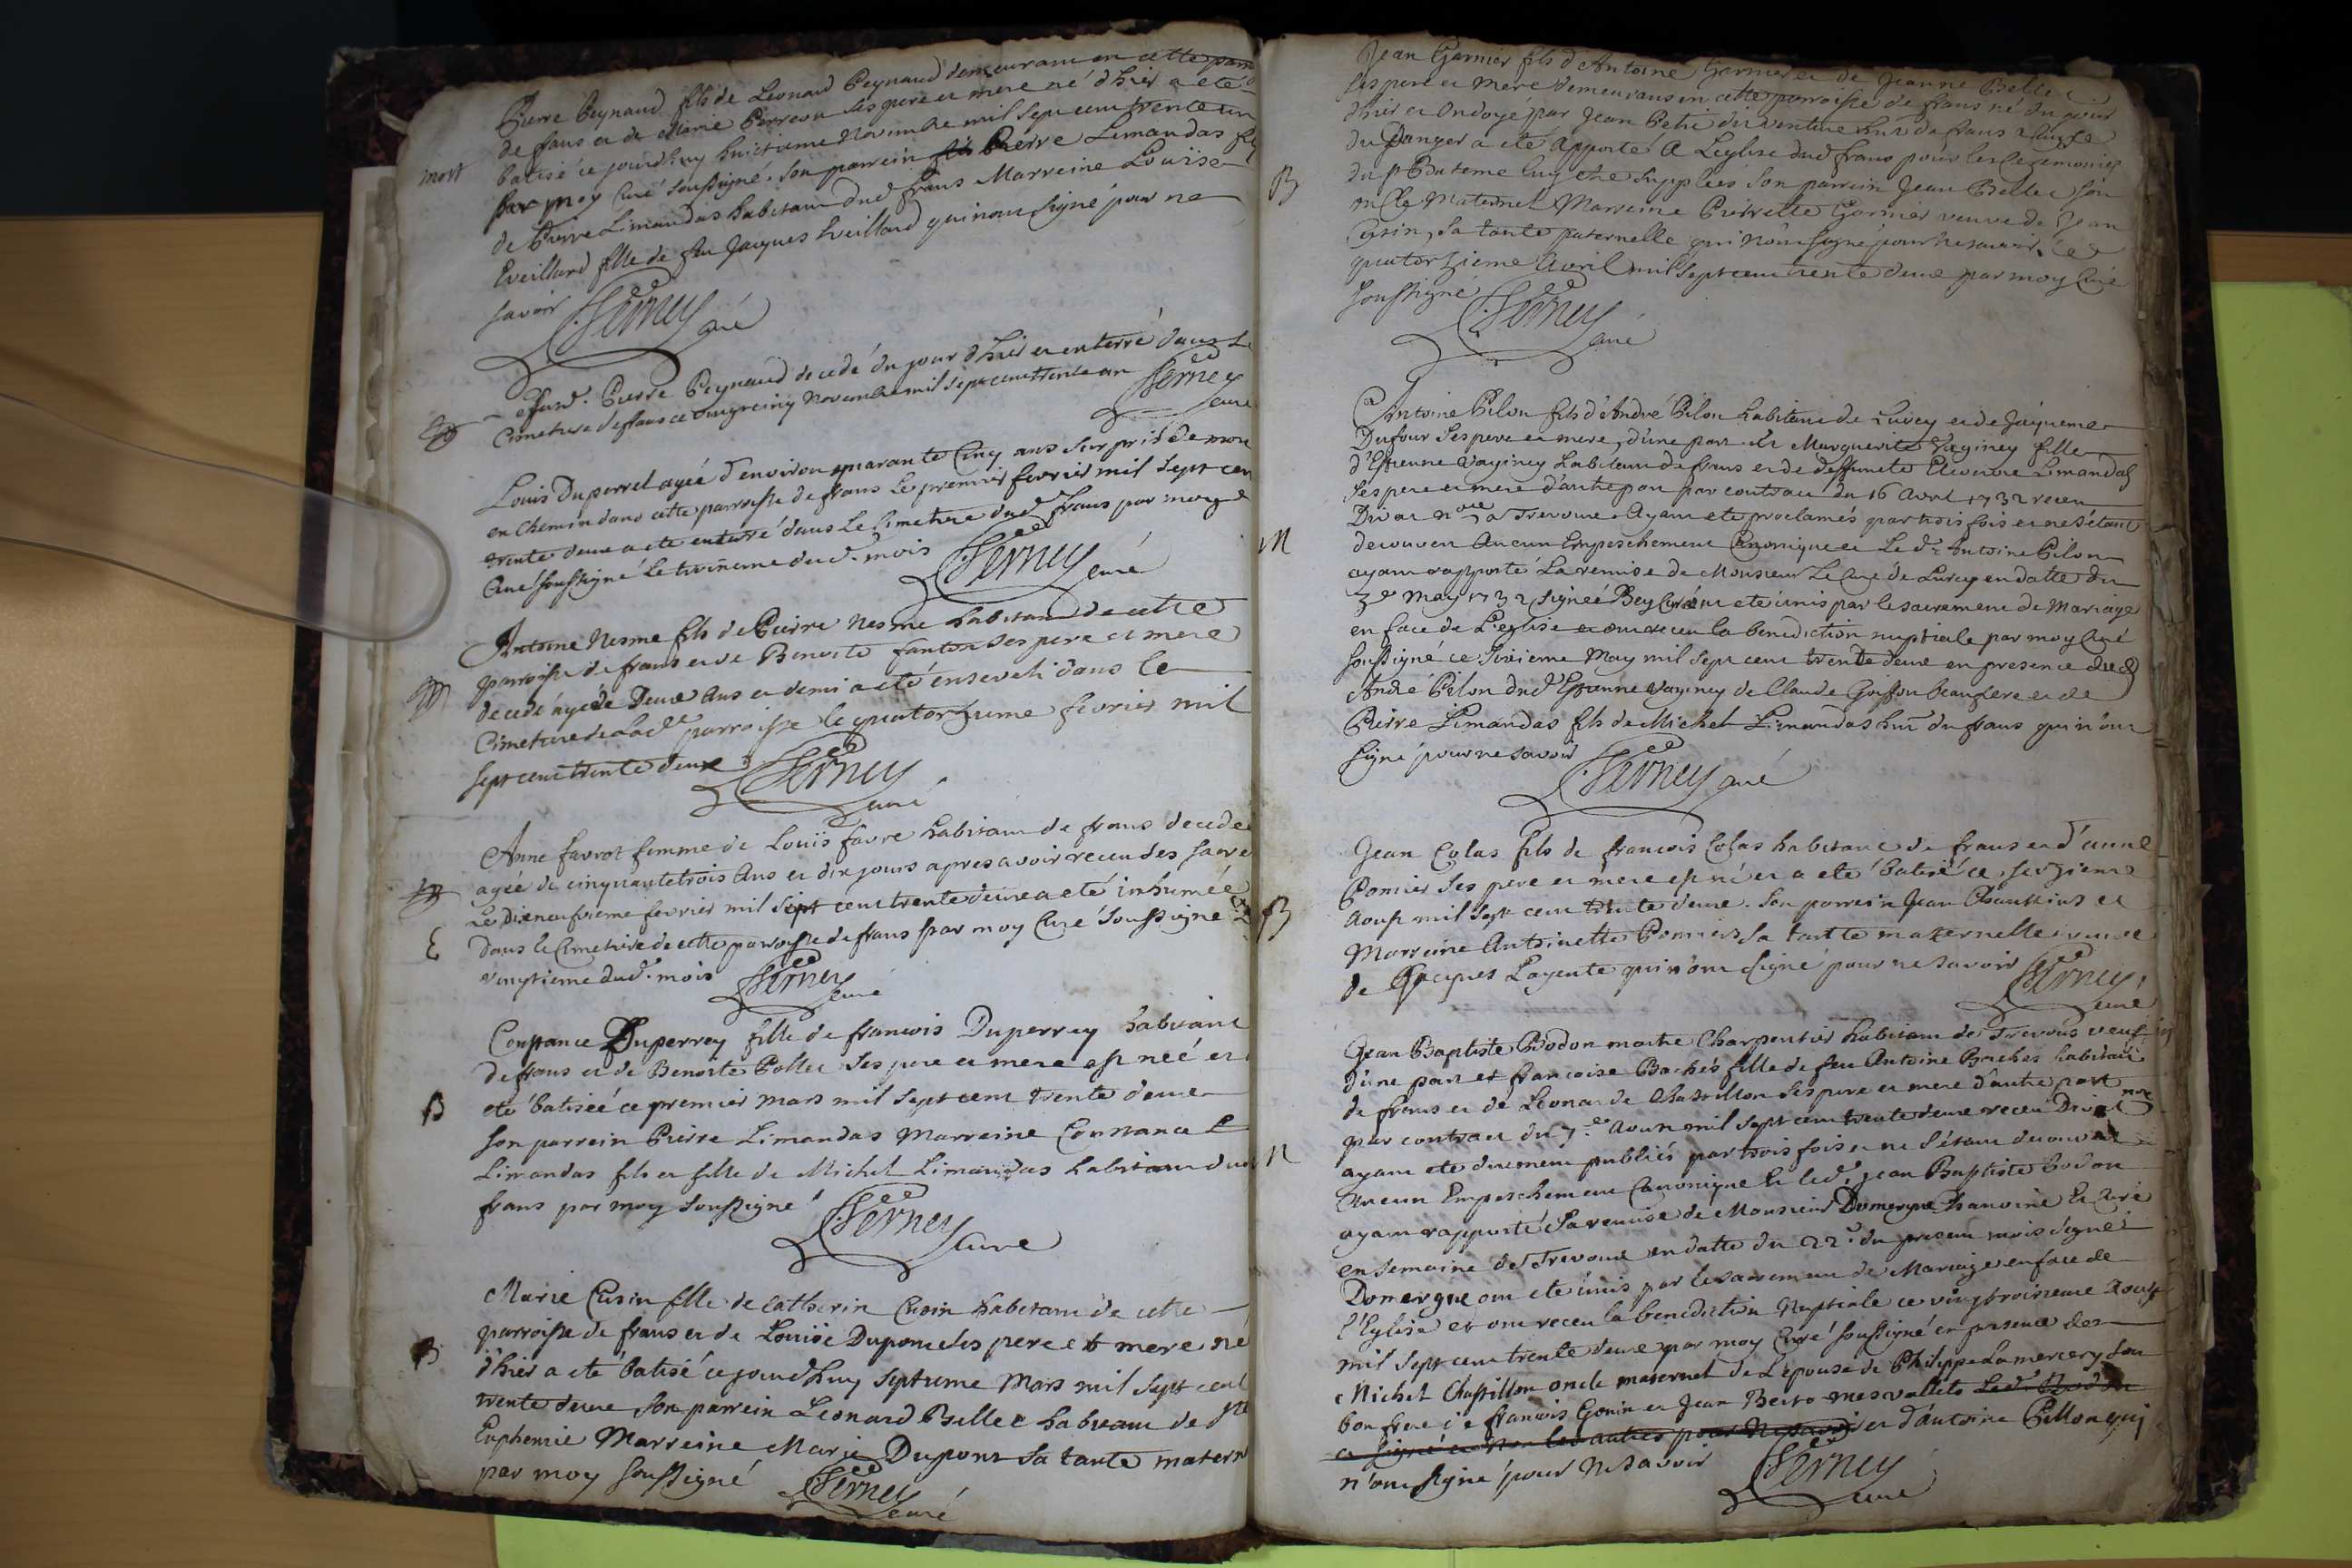 Pierre Peynaud fils de Leonard Peynaud demeurant en cette parr
de frans et de Marie Perreon ses pere et mere né d'hier a eté
mort
batisé ce jourdhuy huictieme Novembre mil sept cent trente un
par moy Curé soussigné. son parrein Pierre Limandas fils
de Pierre Limandas habitant dud frans Marreine Louise
Eveillard fille de feu Jacques Eveillard qui n'ont signé pour ne
savoir Serney curé
Pierre Peynaud decedé du jour d'hier et enterré dans le
Cimetiere de frans ce Novembre mil sept cent trente un Serney
curé
Louis Duperrel agée d'environ quarante Cinq ans surpris de mort
en chemin dans cette parroisse de frans le premier fevrier mil sept cen
trente deux a eté enterré dans le Cimetiere dud frans par moy
Curé soussigné le troisieme dud. mois Serney curé
Antoine Nesme fils de Pierre Nesme habitant de cette
parroisse de frans et de Benoite fanton ses pere et mere
decedé agé de Deux ans et demi a eté enseveli dans le
Cimetiere de lad.e parroisse le quatorzieme fevrier mil
sept cent trente deux Serney
curé
Anne favrot femme de Louis favre habitant de frans decedée
agée de cinquante trois Ans et dix jours apres avoir receu des sacre
Le Dixneufvieme fevrier mil sept cent trente deux a eté inhumée
E
Dans le Cimetiere de cette parroisse de frans par moy Curé soussigné
vingtieme dud. mois Serney
curé
Constance Duperrey fille de francois Duperrey habitant
de frans et de Benoite Pollet ses pere et mere est neé et
B
eté batiseé ce premier Mars mil sept cent trente deux
son parrein Pierre Limandas Marreine Constance
Limandas fils et fille de Michel Limandas habitant dud
frans par moy soussigné Serney
curé
Marie Cusin fille de Catherin Cusin habitant de cette
parroisse de frans et de Louise Dupont ses pere et mere né
B
d'hier a eté batisé ce jourdhuy septieme Mars mil sept cent
trente deux son parrein Leonard Bellet habitant de Ste
Euphemie Marreine Marie Dupont sa tante matern
par moy soussigné Serney
curé
Jean Garnier fils d'Antoine Garnier et de Jeanne Bellet
ses pere et Mere demeurans en cette parroisse de frans né du jour
d'hier et Ondoyé par Jean Petit de frans a cause
du Danger a eté Apporté A L'eglise dud frans pour les Ceremonies
B
du st Bateme luy etre supplees Son parrein Jean Bellet son
oncle Maternel Marreine Pierrette Garnier veuve de Jean
Cusin, sa tante paternelle qui n'ont signé pour ne savoir, ce
quatorzieme Avril mil sept cent trente deux par moy Curé
soussigné Serney
curé
Antoine Pilon fils d'André Pilon habitant de Lurcy et de Jaqueme
Dufour ses pere et mere, d'une part et Marguerite Vaginey fille
d'Estienne Vaginey habitant de frans et de deffuncte Limandas
ses pere et mere d'autre part par contract du 16 Avril 1732 receu
Divat nore a Trevoux. Ayant eté proclamés par trois fois et ne s'étant
M
decouvert Aucun Empeschement Canonique et Led.t Antoine Pilon
ayant rapporté La remise de Monsieur Le Curé de Lurcy en datte du
3e May 1732 signeé Bey Curé ont eté unis par le sacrement de Mariage
en face de L'eglise et ont receu la benediction nuptiale par moy Curé
soussigné ce sixieme May mil sept cent trente deux en presence dud
André Pilon dud Estienne Vaginey de Claude Goiffon beaufrere et de
Pierre Limandas fils de Michel Limandas du frans qui n'ont
signé pour ne savoir Serney curé
Jean Colas fils de francois Colas habitant de frans et d'anne
Ponnier ses pere et mere est né et a eté batisé ce seizieme
B
Aoust mil sept cent trente deux. Son parrein Jean et
Marreine Antoinette Ponnier sa tante maternelle veuve
de Jacques Layente qui n'ont signé pour ne savoir Serney
curé
Jean Baptiste Bodon maitre Charpentier habitant de Trevoux veuf
d'une part et francoise Bachés fille de feu Antoine Baches habitant
de frans et de Leonarde Chastillon ses pere et mere d'autre part
par contract du 7.e Aoust mil sept cent trente deux receu Divat nore
M
ayant eté duement publiés par trois fois et ne s'étant decouvert
Aucun Empeschement Canonique et led. Jean Baptiste Bodon
ayant rapporté sa remise de Monsieur Domergue Chanoine et Curé
en semaine de Trevoux en datte du 22.e du present mois signeé
Domergue ont eté unis par le sacrement de Mariage en face de
l'Eglise et ont receu la benediction Nuptiale ce vingt troisieme Aoust
mil sept cent trente deux par moy Curé soussigné en presence des
Michel Chastillon oncle maternel de L'epouse de Philippe Lamercery son
bon frere de francois Gonin et Jean Berto mes vallets Led. Bodon
a signé et non les autres pour ne savoir et d'antoine Pillon qui
n'ont signé pour ne savoir Serney
curé